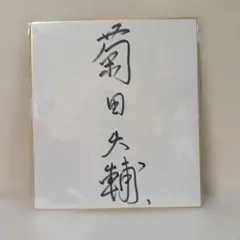 菊田大輔